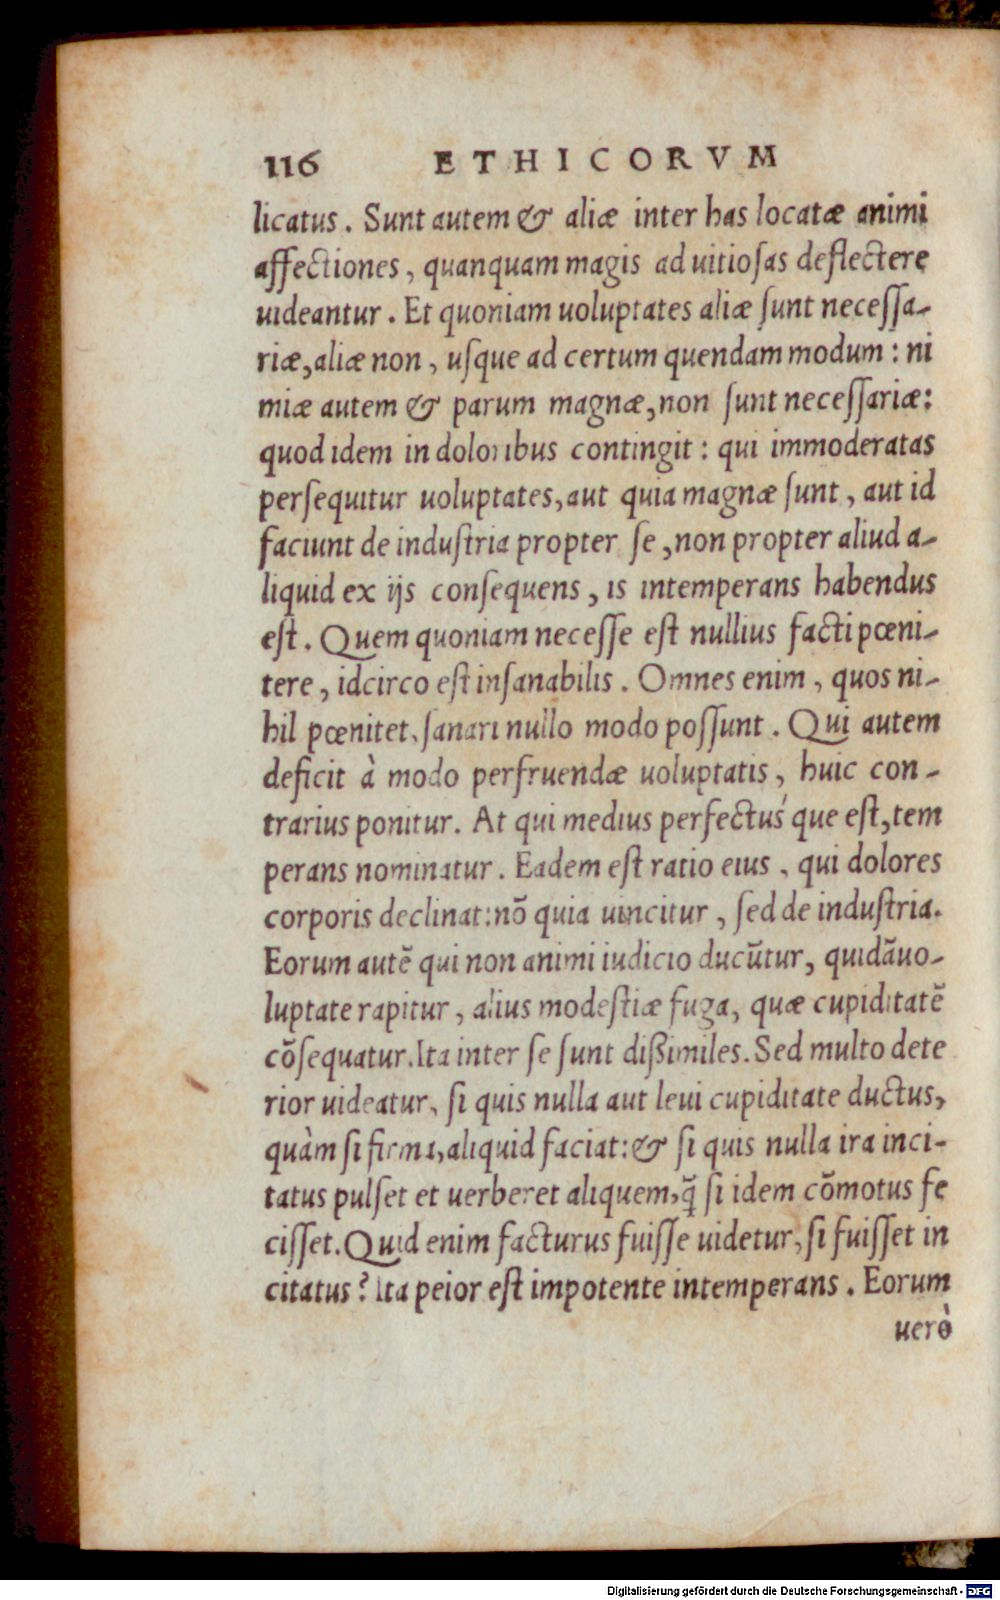 116 ETHICORVM
licatus. Sunt autem & aliæ inter has locatæ animi
affectiones, quanquam magis ad uitiosas deflectere
uideantur. Et quoniam uoluptates aliæ sunt necessa-
riæ, aliæ non, usque ad certum quendam modum: ni
miæ autem & parum magnæ, non sunt necessariæ:
quod idem in doloribus contingit: qui immoderatas
persequitur uoluptates, aut quia magnæ sunt, aut id
faciunt de industria propter se, non propter aliud a-
liquid ex ijs consequens, is intemperans habendus
est. Quem quoniam necesse est nullius facti pœni-
tere, idcirco est insanabilis. Omnes enim, quos ni-
hil pœnitet, sanari nullo modo possunt. Qui autem
deficit à modo perfruendæ uoluptatis, huic con-
trarius ponitur. At qui medius perfectuś que est, tem
perans nominatur. Eadem est ratio eius, qui dolores
corporis declinat: nõ quia uincitur, sed de industria.
Eorum autẽ qui non animi iudicio ducũtur, quidã uo-
luptate rapitur, alius modestiæ fuga, quæ cupiditatẽ
cõsequatur. Ita inter se sunt dißimiles. Sed multo dete
rior uideatur, si quis nulla aut leui cupiditate ductus,
quàm si firma, aliquid faciat: & si quis nulla ira inci-
tatus pulset et uerberet aliquem, q̃ si idem cõmotus fe
cisset. Quid enim facturus fuisse uidetur, si fuisset in
citatus? Ita peior est impotente intemperans. Eorum
uerò
Digitalisierung gefördert durch die Deutsche Forschungsgemeinschaft - DFG